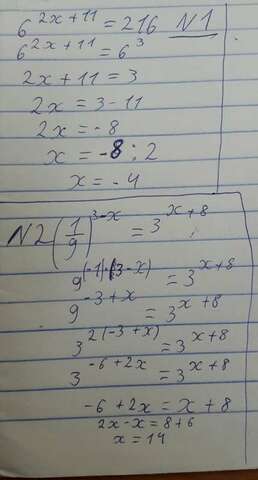 6^(2x+11) = 216 N1
6^(2x+11) = 6^3
2x+11 = 3
2x = 3-11
2x = -8
x = -8 : 2
x = -4
N2 (1/9)^(3-x) = 3^(x+8)
9^((-1)·(3-x)) = 3^(x+8)
9^(-3+x) = 3^(x+8)
3^(2(-3+x)) = 3^(x+8)
3^(-6+2x) = 3^(x+8)
-6+2x = x+8
2x-x = 8+6
x = 14